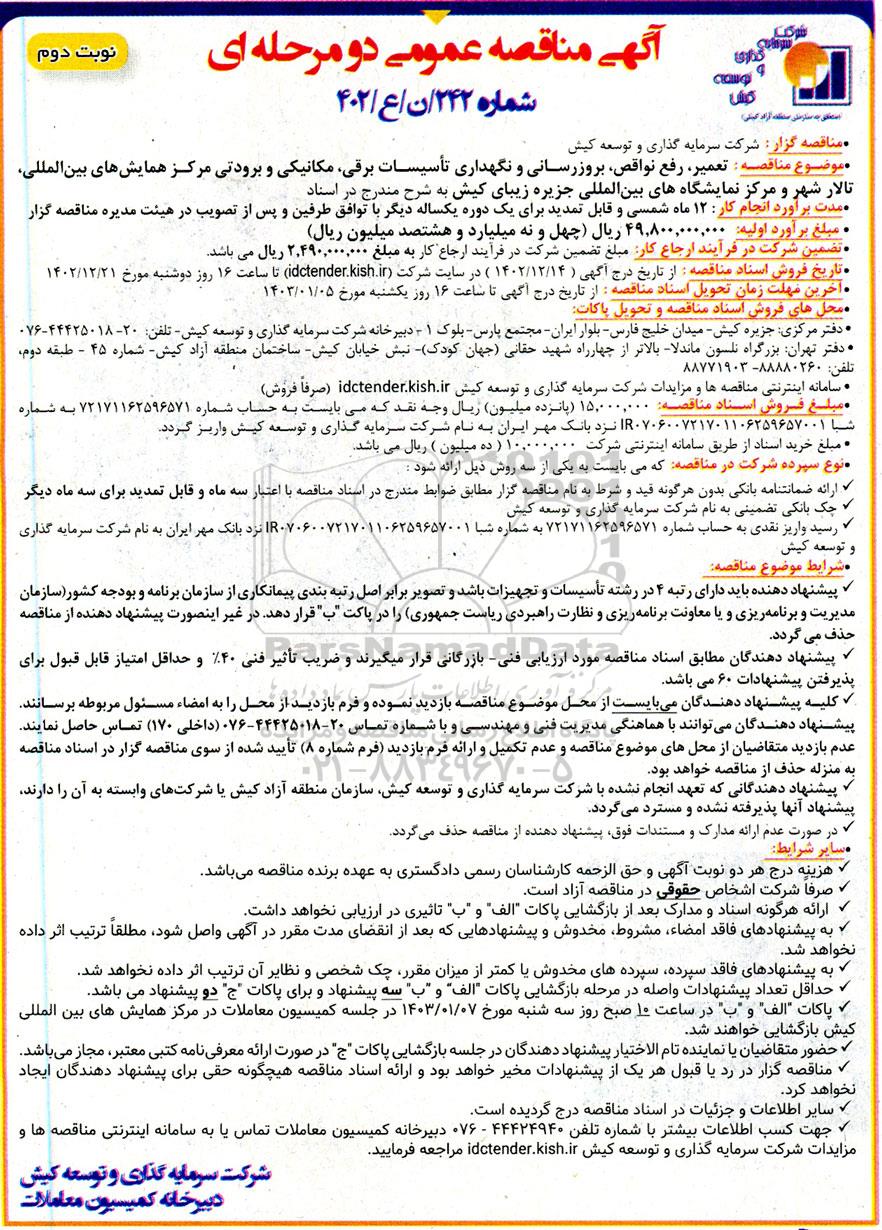 نوبت دوم
آگهی مناقصه عمومی دو مرحله ای
شماره ۲۴۲/ن/ع/۴۰۲
شرکت
سرمایه
گذاری
و
توسعه
کیش
(متعلق به سازمان منطقه آزاد کیش)
•مناقصه گزار: شرکت سرمایه گذاری و توسعه کیش
•موضوع مناقصه: تعمیر، رفع نواقص، بروزرسانی و نگهداری تأسیسات برقی، مکانیکی و برودتی مرکز همایش‌های بین‌المللی،
تالار شهر و مرکز نمایشگاه های بین‌المللی جزیره زیبای کیش به شرح مندرج در اسناد
•مدت برآورد انجام کار: ۱۲ ماه شمسی و قابل تمدید برای یک دوره یکساله دیگر با توافق طرفین و پس از تصویب در هیئت مدیره مناقصه گزار
• مبلغ برآورد اولیه: ۴۹,۸۰۰,۰۰۰,۰۰۰ ریال (چهل و نه میلیارد و هشتصد میلیون ریال)
•تضمین شرکت در فرآیند ارجاع کار: مبلغ تضمین شرکت در فرآیند ارجاع کار به مبلغ ۲,۴۹۰,۰۰۰,۰۰۰ ریال می باشد.
•تاریخ فروش اسناد مناقصه : از تاریخ درج آگهی ( ۱۴۰۲/۱۲/۱۴ ) در سایت شرکت (idctender.kish.ir) تا ساعت ۱۶ روز دوشنبه مورخ ۱۴۰۲/۱۲/۲۱
•آخرین مهلت زمان تحویل اسناد مناقصه : از تاریخ درج آگهی تا ساعت ۱۶ روز یکشنبه مورخ ۱۴۰۳/۰۱/۰۵
•محل های فروش اسناد مناقصه و تحویل پاکات:
• دفتر مرکزی: جزیره کیش- میدان خلیج فارس- بلوار ایران- مجتمع پارس- بلوک ۱ - دبیرخانه شرکت سرمایه گذاری و توسعه کیش- تلفن: ۲۰-۰۷۶-۴۴۴۲۵۰۱۸
• دفتر تهران: بزرگراه نلسون ماندلا- بالاتر از چهارراه شهید حقانی (جهان کودک)- نبش خیابان کیش- ساختمان منطقه آزاد کیش- شماره ۴۵ - طبقه دوم،
تلفن: ۸۸۸۸۰۲۶۰- ۸۸۷۷۱۹۰۳
• سامانه اینترنتی مناقصه ها و مزایدات شرکت سرمایه گذاری و توسعه کیش idctender.kish.ir (صرفاً فروش)
•مبلغ فروش اسناد مناقصه: ۱۵,۰۰۰,۰۰۰ (پانزده میلیون) ریال وجه نقد که می بایست به حساب شماره ۷۲۱۷۱۱۶۲۵۹۶۵۷۱ به شماره
شبا IR۰۷۰۶۰۰۷۲۱۷۰۱۱۰۶۲۵۹۶۵۷۰۰۱ نزد بانک مهر ایران به نام شرکت سرمایه گذاری و توسعه کیش واریز گردد.
• مبلغ خرید اسناد از طریق سامانه اینترنتی شرکت ۱۰,۰۰۰,۰۰۰ ( ده میلیون ) ریال می باشد.
•نوع سپرده شرکت در مناقصه: که می بایست به یکی از سه روش ذیل ارائه شود :
✓ ارائه ضمانتنامه بانکی بدون هرگونه قید و شرط به نام مناقصه گزار مطابق ضوابط مندرج در اسناد مناقصه با اعتبار سه ماه و قابل تمدید برای سه ماه دیگر
✓ چک بانکی تضمینی به نام شرکت سرمایه گذاری و توسعه کیش
✓ رسید واریز نقدی به حساب شماره ۷۲۱۷۱۱۶۲۵۹۶۵۷۱ به شماره شبا IR۰۷۰۶۰۰۷۲۱۷۰۱۱۰۶۲۵۹۶۵۷۰۰۱ نزد بانک مهر ایران به نام شرکت سرمایه گذاری
و توسعه کیش
•شرایط موضوع مناقصه:
✓ پیشنهاد دهنده باید دارای رتبه ۴ در رشته تأسیسات و تجهیزات باشد و تصویر برابر اصل رتبه بندی پیمانکاری از سازمان برنامه و بودجه کشور(سازمان
مدیریت و برنامه‌ریزی و یا معاونت برنامه‌ریزی و نظارت راهبردی ریاست جمهوری) را در پاکت "ب" قرار دهد. در غیر اینصورت پیشنهاد دهنده از مناقصه
حذف می گردد.
✓ پیشنهاد دهندگان مطابق اسناد مناقصه مورد ارزیابی فنی- بازرگانی قرار میگیرند و ضریب تأثیر فنی ۴۰٪ و حداقل امتیاز قابل قبول برای
پذیرفتن پیشنهادات ۶۰ می باشد.
✓ کلیه پیشنهاد دهندگان می‌بایست از محل موضوع مناقصه بازدید نموده و فرم بازدید از محل را به امضاء مسئول مربوطه برسانند.
پیشنهاد دهندگان می‌توانند با هماهنگی مدیریت فنی و مهندسی و با شماره تماس ۲۰-۰۷۶-۴۴۴۲۵۰۱۸ (داخلی ۱۷۰) تماس حاصل نمایند.
عدم بازدید متقاضیان از محل های موضوع مناقصه و عدم تکمیل و ارائه فرم بازدید (فرم شماره ۸) تأیید شده از سوی مناقصه گزار در اسناد مناقصه
به منزله حذف از مناقصه خواهد بود.
✓ پیشنهاد دهندگانی که تعهد انجام نشده با شرکت سرمایه گذاری و توسعه کیش، سازمان منطقه آزاد کیش یا شرکت‌های وابسته به آن را دارند،
پیشنهاد آنها پذیرفته نشده و مسترد می‌گردد.
✓ در صورت عدم ارائه مدارک و مستندات فوق، پیشنهاد دهنده از مناقصه حذف می‌گردد.
•سایر شرایط:
✓ هزینه درج هر دو نوبت آگهی و حق الزحمه کارشناسان رسمی دادگستری به عهده برنده مناقصه می‌باشد.
✓ صرفاً شرکت اشخاص حقوقی در مناقصه آزاد است.
✓ ارائه هرگونه اسناد و مدارک بعد از بازگشایی پاکات "الف" و "ب" تاثیری در ارزیابی نخواهد داشت.
✓ به پیشنهادهای فاقد امضاء، مشروط، مخدوش و پیشنهادهایی که بعد از انقضای مدت مقرر در آگهی واصل شود، مطلقاً ترتیب اثر داده
نخواهد شد.
✓ به پیشنهادهای فاقد سپرده، سپرده های مخدوش یا کمتر از میزان مقرر، چک شخصی و نظایر آن ترتیب اثر داده نخواهد شد.
✓ حداقل تعداد پیشنهادات واصله در مرحله بازگشایی پاکات "الف" و "ب" سه پیشنهاد و برای پاکات "ج" دو پیشنهاد می باشد.
✓ پاکات "الف" و "ب" در ساعت ۱۰ صبح روز سه شنبه مورخ ۱۴۰۳/۰۱/۰۷ در جلسه کمیسیون معاملات در مرکز همایش های بین المللی
کیش بازگشایی خواهند شد.
✓ حضور متقاضیان یا نماینده تام الاختیار پیشنهاد دهندگان در جلسه بازگشایی پاکات "ج" در صورت ارائه معرفی‌نامه کتبی معتبر، مجاز می‌باشد.
✓ مناقصه گزار در رد یا قبول هر یک از پیشنهادات مخیر خواهد بود و ارائه اسناد مناقصه هیچگونه حقی برای پیشنهاد دهندگان ایجاد
نخواهد کرد.
✓ سایر اطلاعات و جزئیات در اسناد مناقصه درج گردیده است.
✓ جهت کسب اطلاعات بیشتر با شماره تلفن ۴۴۴۲۴۹۴۰ - ۰۷۶ دبیرخانه کمیسیون معاملات تماس یا به سامانه اینترنتی مناقصه ها و
مزایدات شرکت سرمایه گذاری و توسعه کیش idctender.kish.ir مراجعه فرمایید.
شرکت سرمایه گذاری و توسعه کیش
دبیرخانه کمیسیون معاملات
ParsNamadData
۰۲۱-۸۸۳۴۹۶۷۰-۵